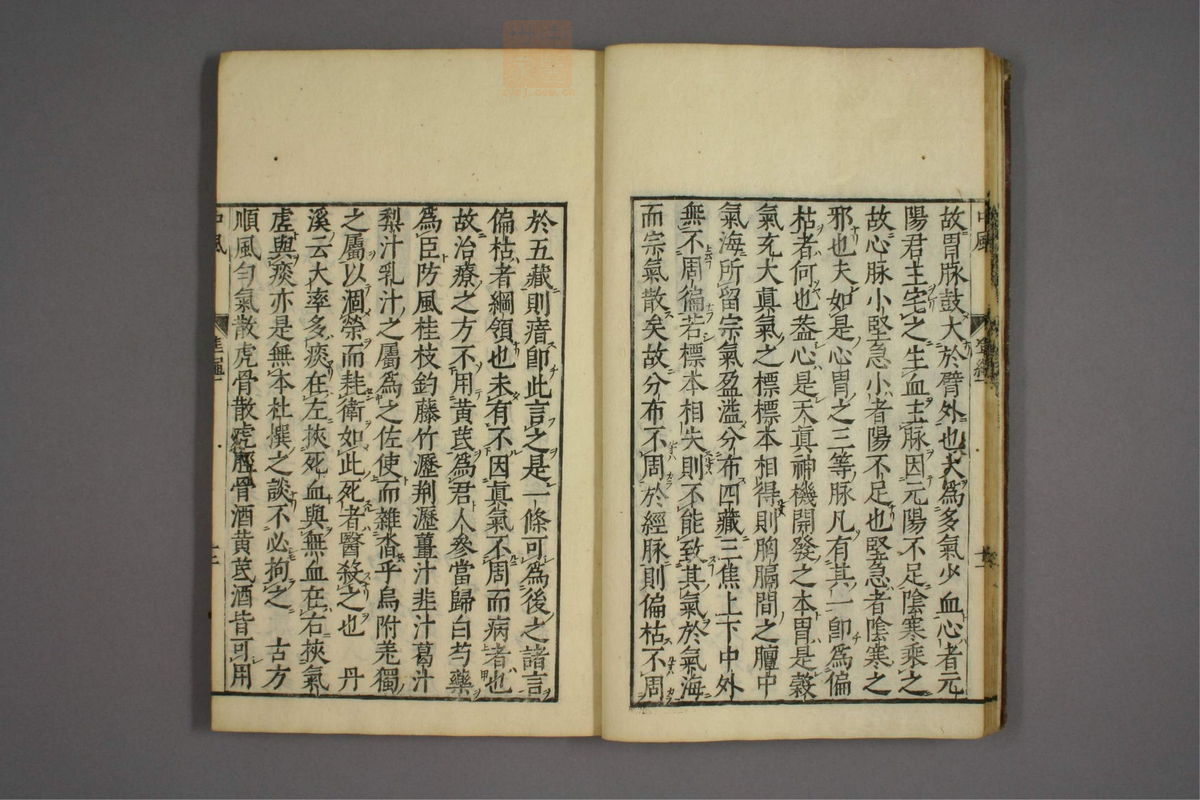 故胃脉鼓大於臂外也大爲多氣少血心者元
陽君主宅之生血主脉因元陽不足陰寒乘之
故心脉小堅急小者陽不足也堅急者陰寒之
邪也夫如是心胃之三等脉凡有其一卽爲偏
枯者何也葢心是天眞神機開發之本胃是穀
氣充大眞氣之標標本相得則胸膈間之膻中
氣海所留宗氣盈溢分布四藏三焦上下中外
無不周徧若標本相失則不能致其氣於氣海
而宗氣散矣故分布不周於經脉則偏枯不周
於五藏則瘖卽此言之是一條可爲後之諸言
偏枯者綱領也未有不因眞氣不周而病者也
故治療之方不用黄芪爲君人參當歸白芍藥
爲臣防風桂枝鈞藤竹瀝荆瀝薑汁韭汁葛汁
梨汁乳汁之屬爲之佐使而雜沓乎烏附羗獨
之屬以涸榮而耗衛如此死者醫殺之也 丹
溪云大率多痰在左挾死血與無血在右挾氣
虚與痰亦是無本杜撰之談不必拘之 古方
順風匀氣散虎骨散虎脛骨酒黄芪酒皆可用
中風